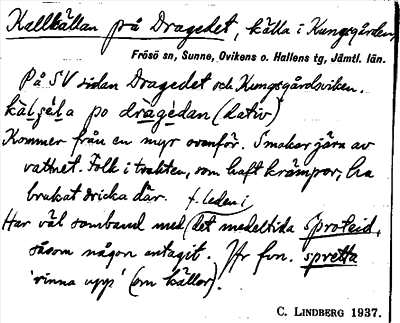 Kallkällan på Dragedet, källa i Kungsgården
Frösö sn, Sunne, Ovikens o. Hallens tg, Jämtl. län.
På SV sidan Dragedet och Kungsgårdsviken.
po dragedan (dativ)
Kommer från en myr ovanför. Smakar järn av
vattnet. Folk i trakten, som haft krämpor, ha
brukat dricka där.
f. leden i
Har väl samband med (det medeltida Sproteid,
såsom någon antagit. Jfr fvn. spretta
'rinna upp' (om källor).
C. LINDBERG 1937.